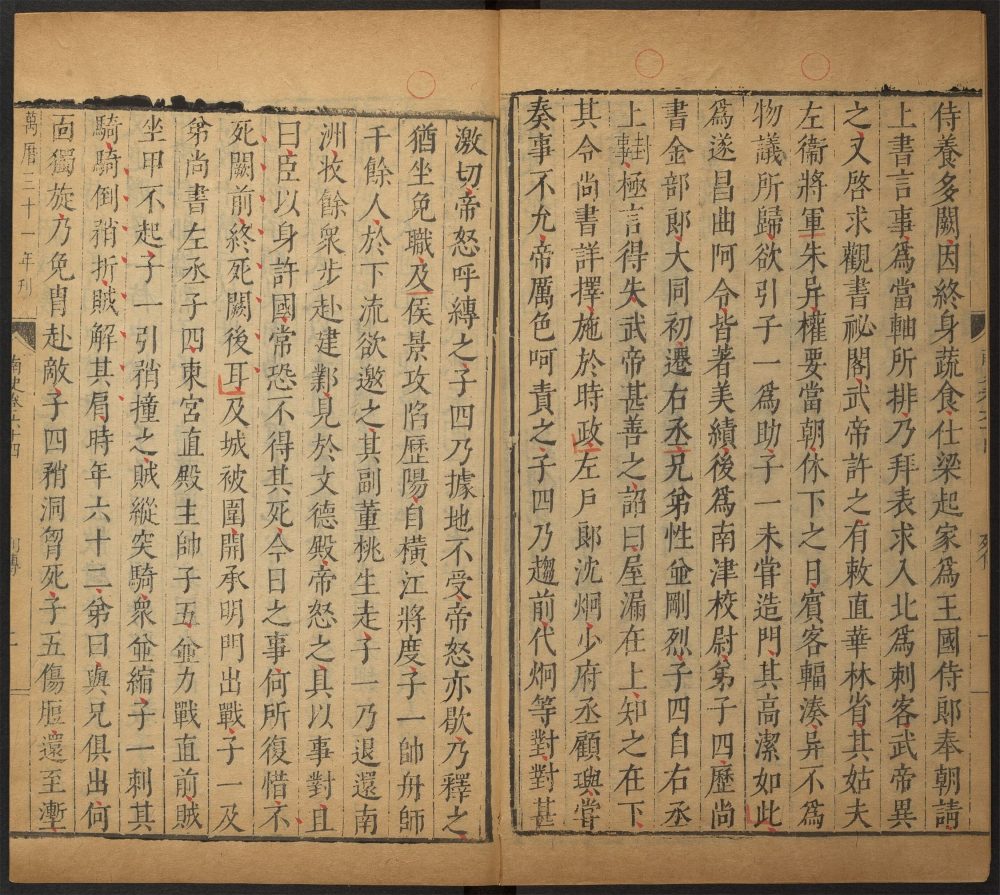 侍養多闕因終身蔬食仕梁起家爲王國侍郎奉朝請
上書言事爲當軸所排乃拜表求入北爲刺客武帝異
之又啓求觀書祕閣武帝許之有敕直華林省其姑夫
左衞將軍朱异權要當朝休下之日賓客輻湊异不爲
物議所歸欲引子一爲助子一未嘗造門其高潔如此
爲遂昌曲阿令皆著美績後爲南津校尉弟子四歷尚
書金部郎大同初遷右丞兄弟性並剛烈子四自右丞
上封事極言得失武帝甚善之詔曰屋漏在上知之在下
其令尚書詳擇施於時政左戶郎沈炯少府丞顧璵嘗
奏事不允帝厲色呵責之子四乃趨前代炯等對對甚
激切帝怒呼縛之子四乃據地不受帝怒亦歇乃釋之
猶坐免職及侯景攻陷歷陽自橫江將度子一帥舟師
千餘人於下流欲邀之其副董桃生走子一乃退還南
洲收餘衆步赴建鄴見於文德殿帝怒之具以事對且
曰臣以身許國常恐不得其死今日之事何所復惜不
死闕前終死闕後耳及城被圍開承明門出戰子一及
弟尚書左丞子四東宮直殿主帥子五並力戰直前賊
坐甲不起子一引矟撞之賊縱突騎衆並縮子一刺其
騎騎倒矟折賊解其肩時年六十二弟曰與兄俱出何
面獨旋乃免胄赴敵子四矟洞胷死子五傷脰還至塹
萬曆三十一年刊
南史卷六十四
列傳